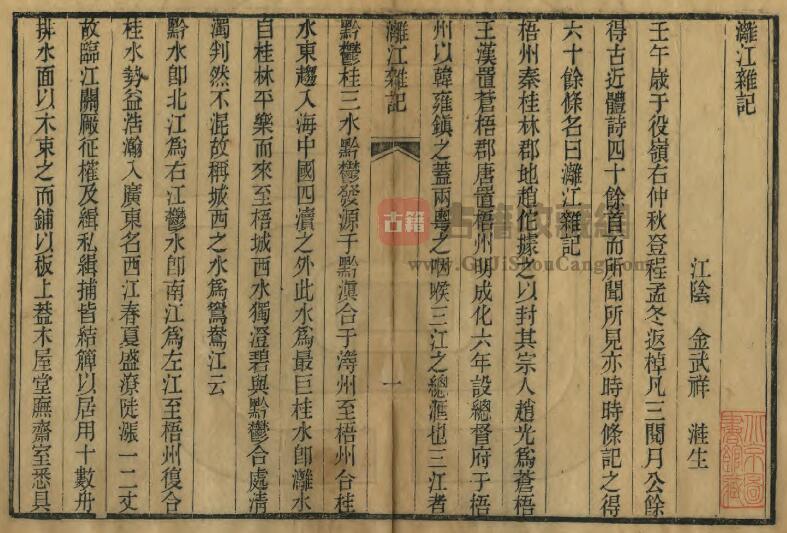 灕江雜記
江陰 金武祥 溎生
壬午歲于役嶺右仲秋登程孟冬返棹凡三閱月公餘
得古近體詩四十餘首而所聞所見亦時時條記之得
六十餘條名曰灕江雜記
梧州秦桂林郡地趙佗據之以封其宗人趙光爲蒼梧
王漢置蒼梧郡唐置梧州明成化六年設總督府于梧
州以韓雍鎮之蓋兩粵之咽喉三江之總滙也三江者
灕江雜記
一
黔鬱桂三水黔鬱發源于黔滇合于潯州至梧州合桂
水東趨入海中國四瀆之外此水爲最巨桂水卽灕水
自桂林平樂而來至梧城西水獨澄碧與黔鬱合處清
濁判然不混故稱城西之水爲鴛鴦江云
黔水卽北江爲右江鬱水卽南江爲左江至梧州復合
桂水勢益浩瀚入廣東名西江春夏盛潦陡漲一二丈
故臨江關厰征榷及緝私緝捕皆結簰以居用十數舟
排水面以木束之而鋪以板上葢木屋堂廡齋室悉具
古籍
古籍收藏網
www.GuJiShouCang.com